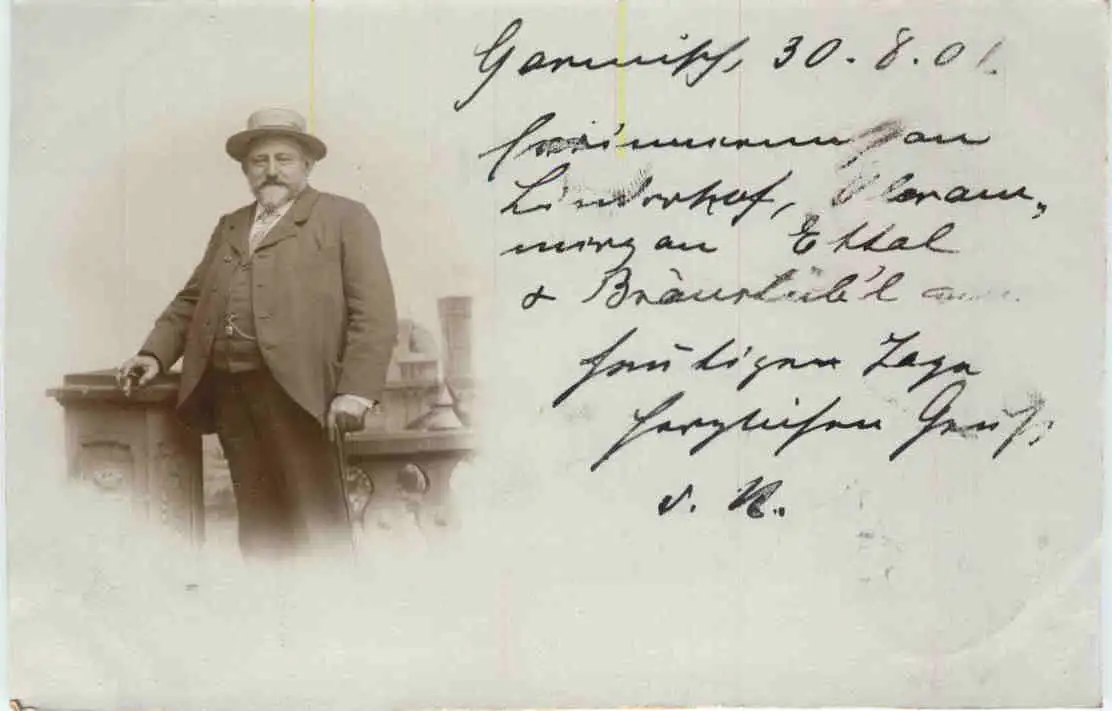 Garmisch, 30. 8. 01.
Erinnerung an
Linderhof, Oberam„
mergau Ettal
& Bräustüb'l am
heutigen Tage
herzlichen Gruß,
v. R.